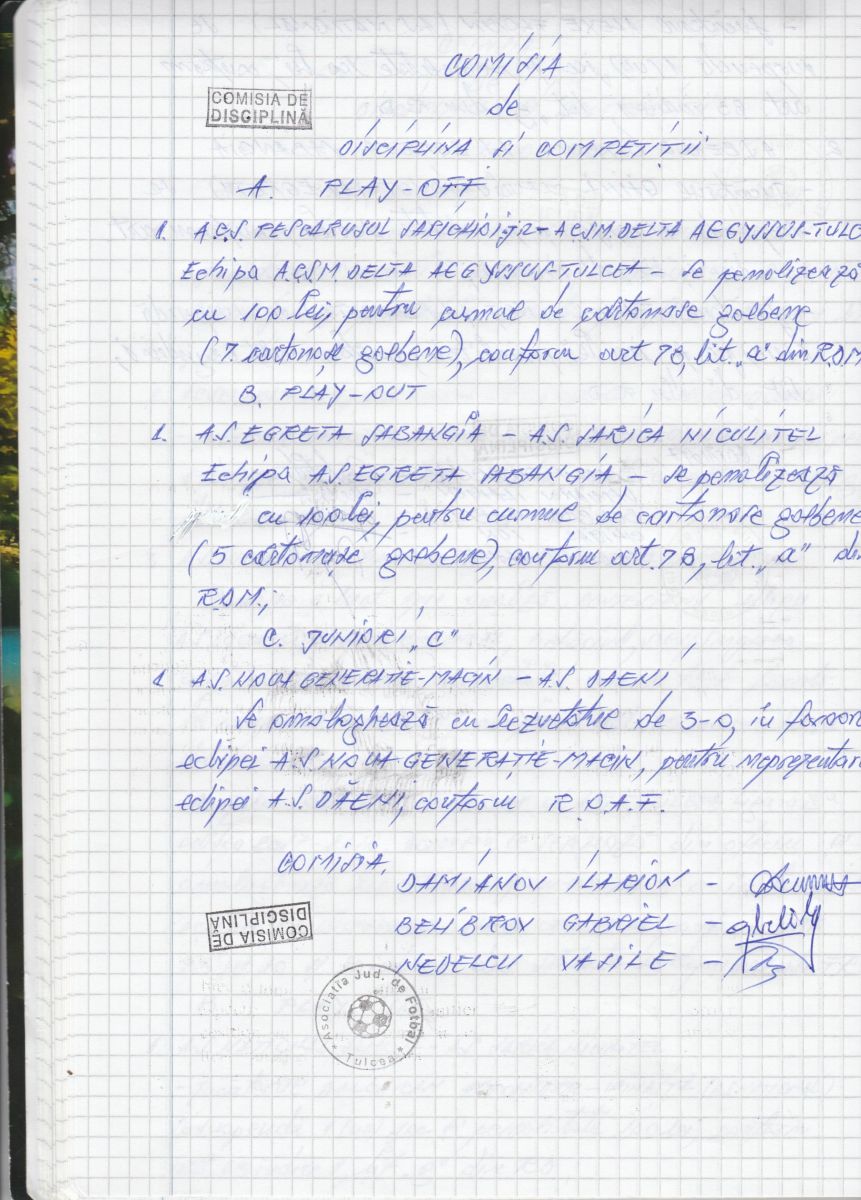 COMISIA
COMISIA DE
DISCIPLINĂ
de
DISCIPLINA SI COMPETITII
A. PLAY-OFF
1. A.C.S. PESCARUSUL SARICHIOI - A.C.S.M. DELTA AEGYSSUS-TULC
Echipa A.C.S.M. DELTA AEGYSSUS-TULCEA - se penalizează
cu 100 lei, pentru cumul de cartonase galbene
(7 cartonașe galbene), conform art 78, lit. „a" din R.D.M
B. PLAY-OUT
1. A.S. EGRETA SABANGIA - A.S. SARICA NICULITEL
Echipa A.S. EGRETA SABANGIA - se penalizează
cu 100 lei, pentru cumul de cartonase galbene
(5 cartonașe galbene), conform art. 78, lit. „a" din
R.D.M.;
C. JUNIORI „C"
1. A.S. NOUA GENERATIE-MACIN - A.S. DAENI
Se omologhează cu rezultatul de 3-0, în favoare
echipei A.S. NOUA GENERATIE-MACIN, pentru neprezentare
echipei A.S. DĂENI, conform R.O.A.F.
COMISIA,
DAMIANOV ILARION -
BELIBROV GABRIEL -
NEDELCU VASILE -
COMISIA DE
DISCIPLINĂ
Asociatia Jud. de Fotbal
* Tulcea *